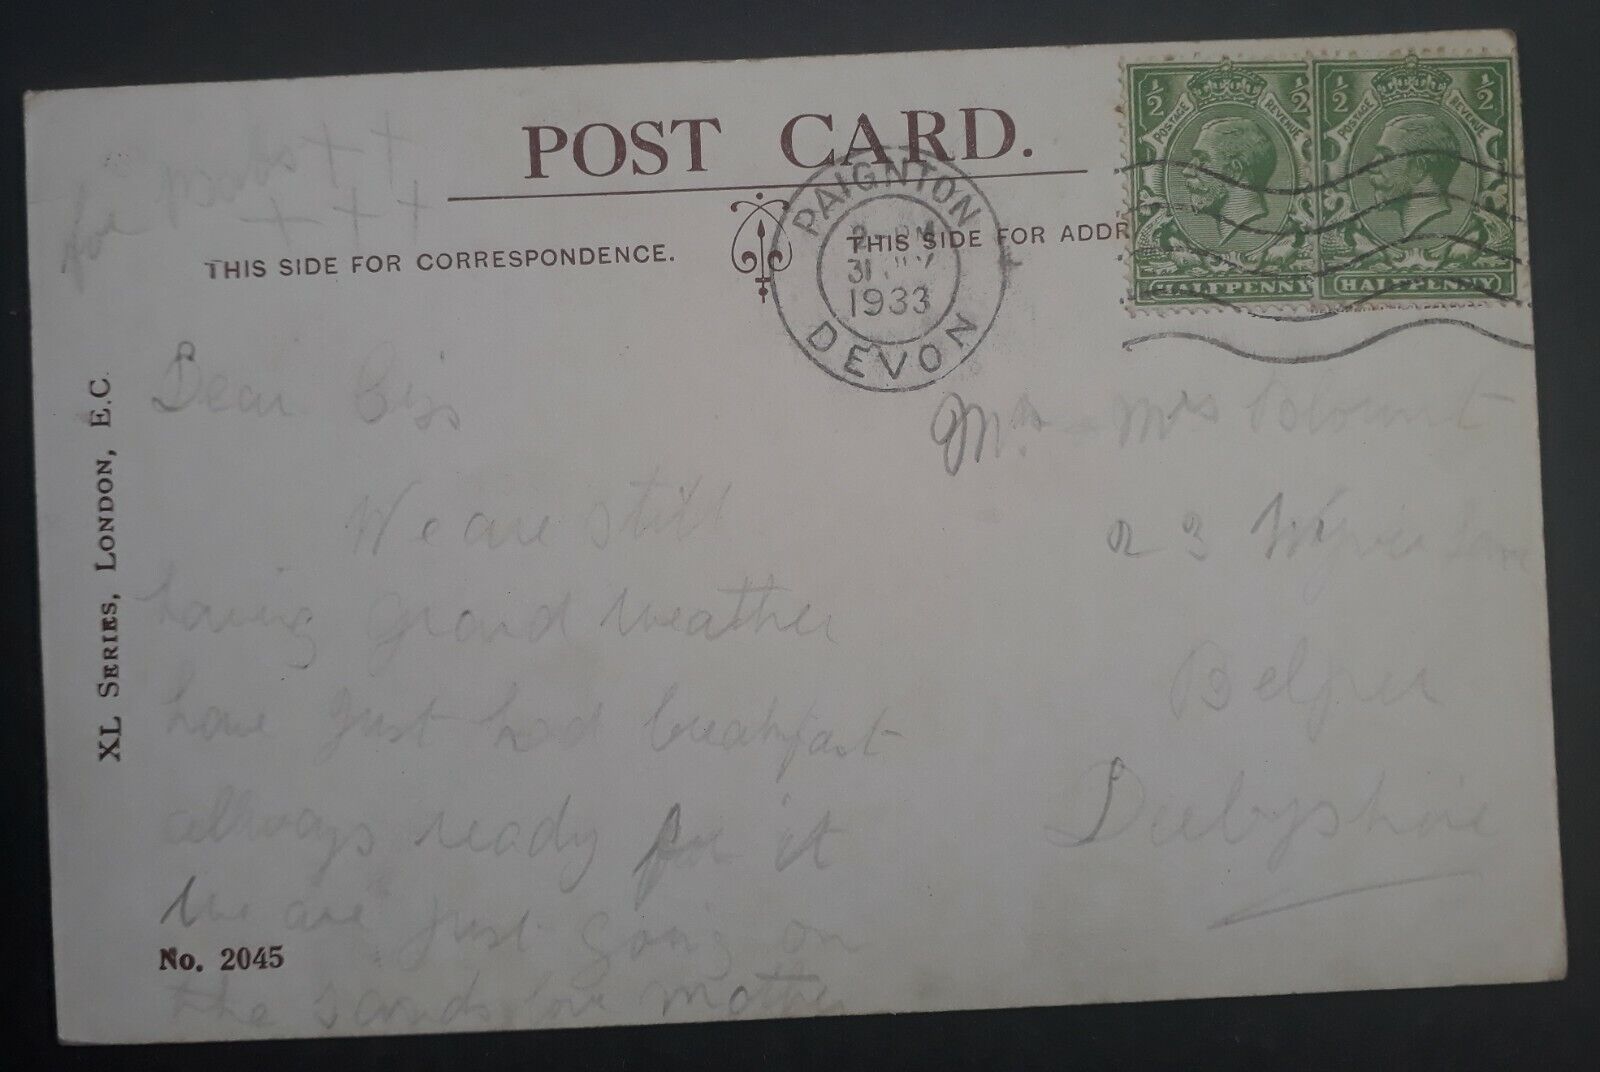 POST CARD.
for Babs + +
+ + +
THIS SIDE FOR CORRESPONDENCE.
THIS SIDE FOR ADDR
PAIGNTON
PM
31
1933
DEVON
½ POSTAGE REVENUE ½
HALFPENNY
½ POSTAGE REVENUE ½
HALFPENNY
XL SERIES, LONDON, E.C.
Dear Ciss
We are still
having grand weather
have just had breakfast
allways ready for it
We are just going on
the sands love Mother
No. 2045
Mr Mrs Blount
23 Wyver Lane
Belper
Derbyshire